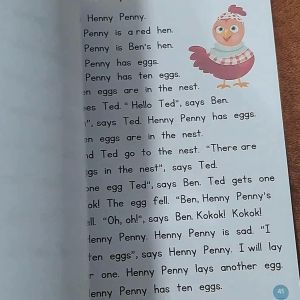 Henny Penny.
Penny is a red hen.
Penny is Ben's hen.
Penny has eggs.
Penny has ten eggs.
en eggs are in the nest.
es Ted. "Hello Ted", says Ben.
", says Ted. Henny Penny has eggs.
en eggs are in the nest.
nd Ted go to the nest. "There are
ggs in the nest", says Ted.
one egg Ted", says Ben. Ted gets one
ok! The egg fell. "Ben, Henny Penny's
ell. "Oh, oh!", says Ben. Kokok! Kokok!
Henny Penny. Henny Penny is sad. "I
ten eggs", says Henny Penny. I will lay
r one. Henny Penny lays another egg.
enny Penny has ten eggs.